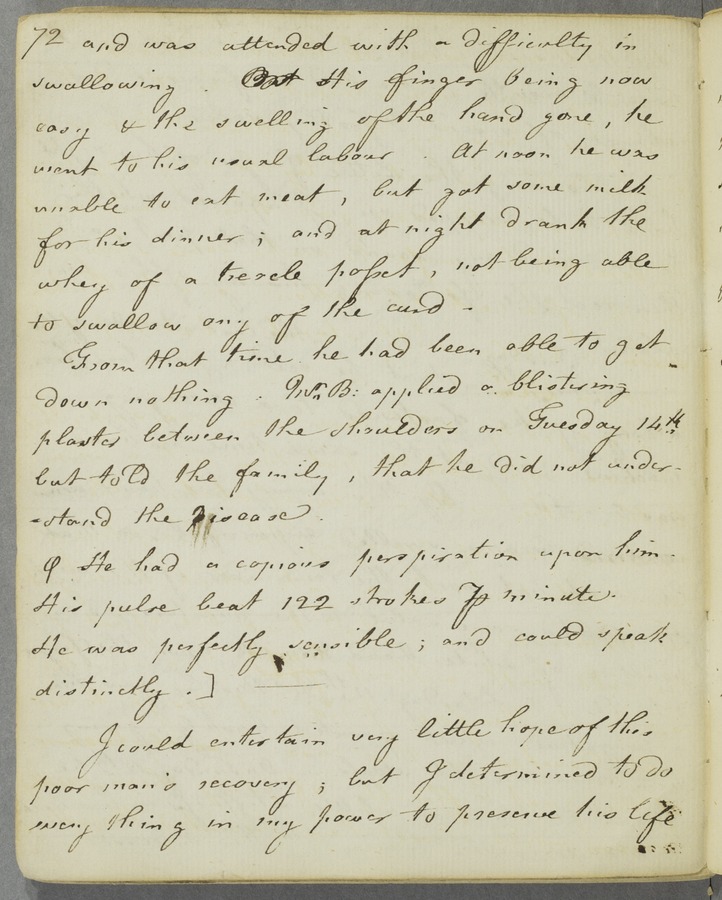 72 and was attended with a difficulty in
swallowing . His finger being now
easy & the swelling of the hand gone, he
went to his usual labour . At noon he was
unable to eat meat, but got some milk
for his dinner ; and at night drank the
whey of a treacle poſset, not being able
to swallow any of the curd -
From that time he had been able to get
down nothing . Mr. B: applied a blistering
plaster between the shoulders on Tuesday 14th
but told the family, that he did not under-
-stand the Disease .
He had a copious perspiration upon him -
His pulse beat 122 strokes ⅌ minute.
He was perfectly sensible ; and could speak
distinctly . ] —
I could entertain very little hope of this
poor man's recovery ; but I determined to do
every thing in my power to preserve his life